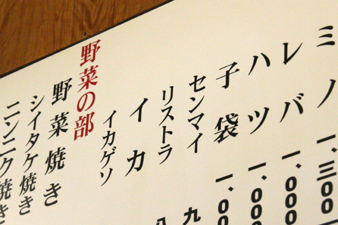 ミノ 一、三〇〇
レバ 一、〇〇
ハツ 一、〇〇
子袋 一、〇
センマイ 九
リストラ 八
イカ
イカゲソ
野菜の部
野菜焼き
シイタケ焼き
ニンニク焼き